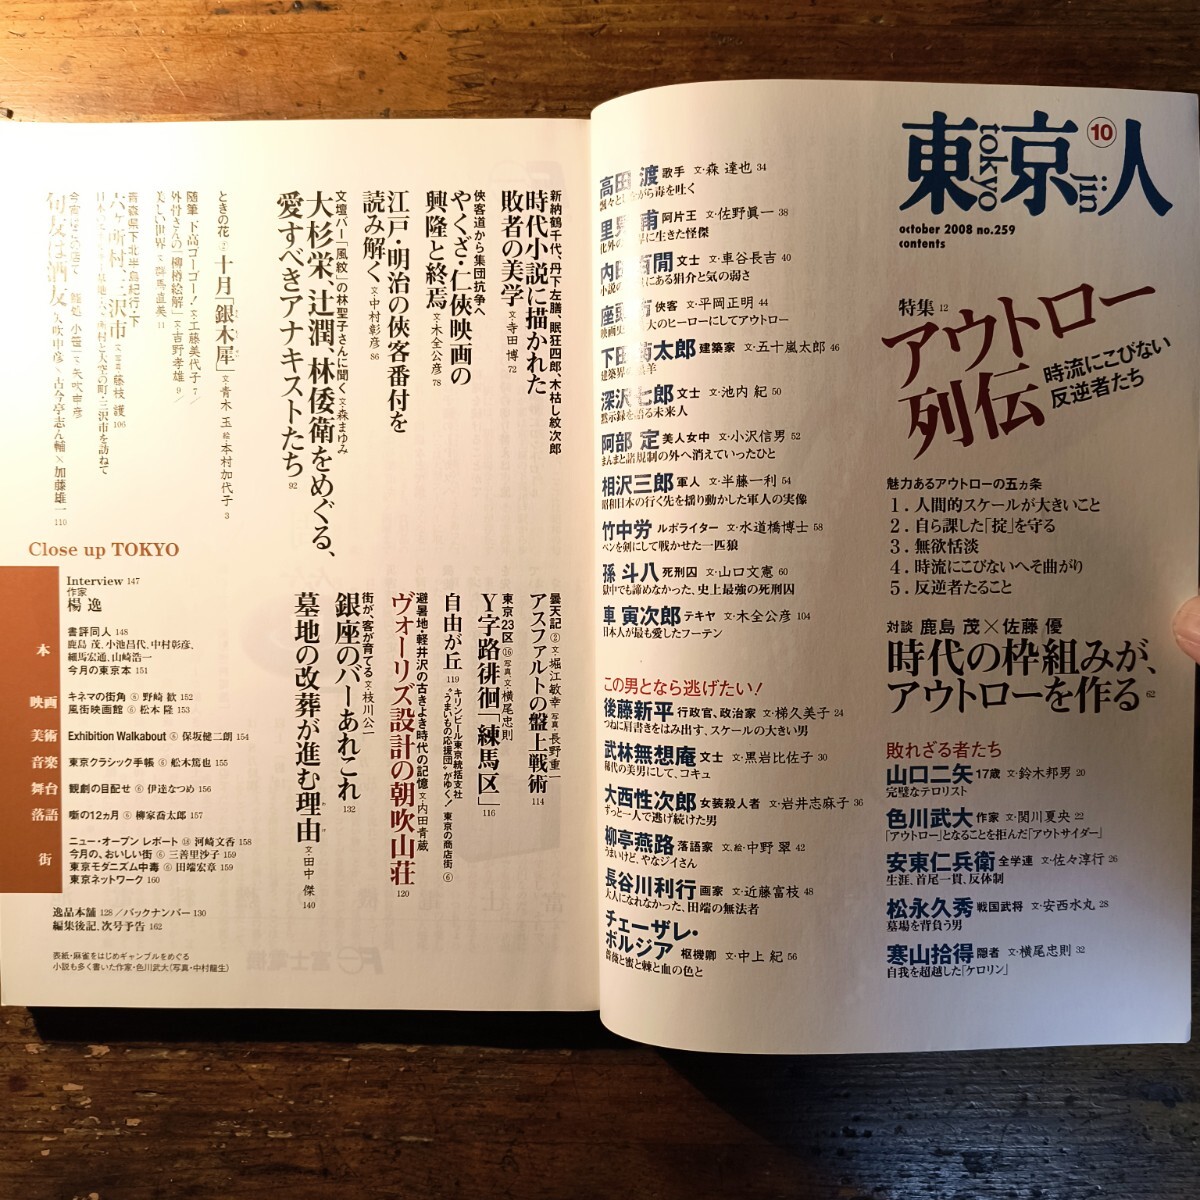 東京人
tokyo
jin
10
october 2008 no.259
contents
特集 12
アウトロー
列伝
時流にこびない
反逆者たち
魅力あるアウトローの五ヵ条
1．人間的スケールが大きいこと
2．自ら課した「掟」を守る
3．無欲恬淡
4．時流にこびないへそ曲がり
5．反逆者たること
対談 鹿島 茂×佐藤 優
時代の枠組みが、
アウトローを作る 62
敗れざる者たち
山口二矢 17歳 文・鈴木邦男 20
完璧なテロリスト
色川武大 作家 文・関川夏央 22
「アウトロー」となることを拒んだ「アウトサイダー」
安東仁兵衛 全学連 文・佐々淳行 26
生涯、首尾一貫、反体制
松永久秀 戦国武将 文・安西水丸 28
墓場を背負う男
寒山拾得 隠者 文・横尾忠則 32
自我を超越した「ケロリン」
高田 渡 歌手 文・森 達也 34
がら毒を吐く
里見 甫 阿片王 文・佐野眞一 38
化外の 界に生きた怪傑
内田百閒 文士 文・車谷長吉 40
小説の にある狷介と気の弱さ
座頭市 侠客 文・平岡正明 44
映画史 大のヒーローにしてアウトロー
下田菊太郎 建築家 文・五十嵐太郎 46
建築界の 羊
深沢七郎 文士 文・池内 紀 50
黙示録を語る未来人
阿部 定 美人女中 文・小沢信男 52
まんまと諸規制の外へ消えていったひと
相沢三郎 軍人 文・半藤一利 54
昭和日本の行く先を揺り動かした軍人の実像
竹中労 ルポライター 文・水道橋博士 58
ペンを剣にして戦かせた一匹狼
孫 斗八 死刑囚 文・山口文憲 60
獄中でも諦めなかった、史上最強の死刑囚
車 寅次郎 テキヤ 文・木全公彦 104
日本人が最も愛したフーテン
この男となら逃げたい！
後藤新平 行政官、政治家 文・梯久美子 24
つねに肩書きをはみ出す、スケールの大きい男
武林無想庵 文士 文・黒岩比佐子 30
稀代の美男にして、コキュ
大西性次郎 女装殺人者 文・岩井志麻子 36
ずっと一人で逃げ続けた男
柳亭燕路 落語家 文、絵・中野 翠 42
うまいけど、やなジイさん
長谷川利行 画家 文・近藤富枝 48
大人になれなかった、田端の無法者
チェーザレ・
ボルジア 枢機卿 文・中上 紀 56
薔薇と蜜と棘と血の色と
新納鶴千代、丹下左膳、眠狂四郎、木枯し紋次郎
時代小説に描かれた
敗者の美学 文・寺田 博 72
侠客道から集団抗争へ
やくざ・仁侠映画の
興隆と終焉 文・木全公彦 78
江戸・明治の侠客番付を
読み解く 文・中村彰彦 86
文壇バー「風紋」の林聖子さんに聞く 文・森まゆみ
大杉栄、辻潤、林倭衛をめぐる、
愛すべきアナキストたち 92
ときの花 十月「銀木犀」 文・青木 玉 絵・本村加代子 3
随筆 下高コーゴー！ 文・工藤美代子 7
外骨さんの「柳樽絵解」 文・吉野孝雄 9
美しい世界 文・群馬直美 11
青森県下北半島紀行・下
六ヶ所村、三沢市 藤枝 護 106
村と人空の町・三沢市を訪ねて
矢吹申彦
句友は酒友 矢吹申彦×古今亭志ん輔×加藤雄一 110
曇天記② 文・堀江敏幸 写真・長野重一
アスファルトの盤上戦術 114
東京23区⑯ 写真、文・横尾忠則
Y字路徘徊「練馬区」 116
自由が丘 119
キリンビール東京統括支社
“うまいもの応援団”がゆく！ 東京の商店街⑥
避暑地・軽井沢の古きよき時代の記憶 文・内田青蔵
ヴォーリズ設計の朝吹山荘 120
街が客が育てる 文・枝川公一
銀座のバーあれこれ 132
墓地の改葬が進む理由 文・田中 傑 140
Close up TOKYO
Interview 147
作家
楊 逸
本
書評同人 148
鹿島 茂、小池昌代、中村彰彦、
細馬宏通、山崎浩一
今月の東京本 151
映画
キネマの街角 ⑥ 野崎 歓 152
風街映画館 ⑥ 松本 隆 153
美術
Exhibition Walkabout ⑥ 保坂健二朗 154
音楽
東京クラシック手帳 ⑥ 舩木篤也 155
舞台
観劇の目配せ ⑥ 伊達なつめ 156
落語
噺の12ヵ月 ⑥ 柳家喬太郎 157
街
ニュー・オープン レポート ⑱ 河崎文香 158
今月の、おいしい街 ⑥ 三善里沙子 159
東京モダニズム中毒 ⑥ 田端宏章 159
東京ネットワーク 160
逸品本舗 128／バックナンバー 130
編集後記、次号予告 162
表紙・麻雀をはじめギャンブルをめぐる
小説も多く書いた作家・色川武大（写真・中村龍生）